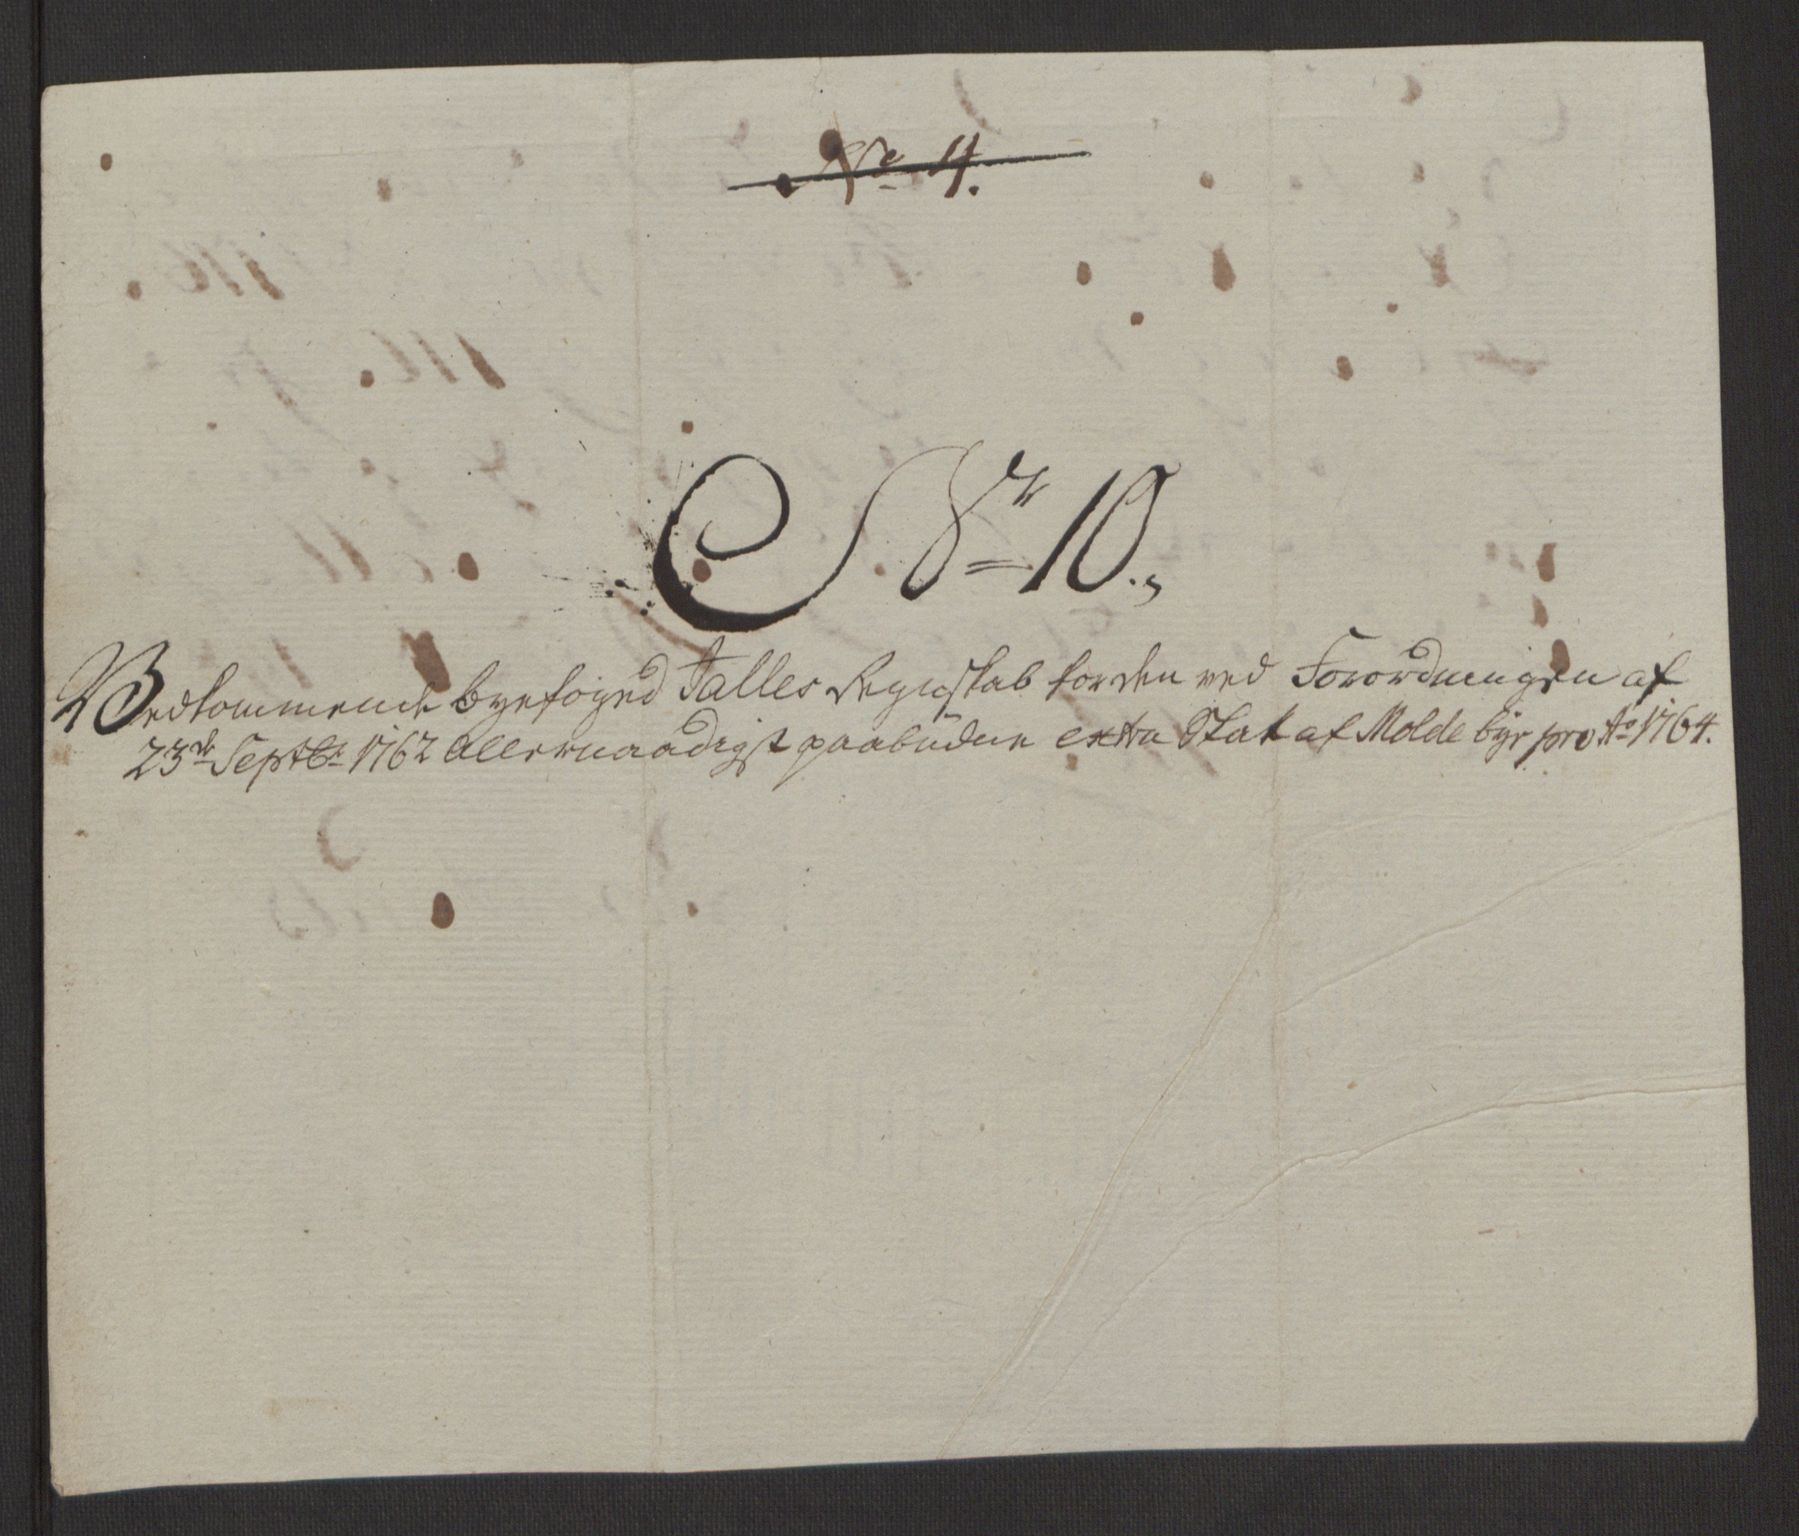 No 4.
Nr 10.
Vedkommende byefoged Talles Regnskab for den ved Forordningen af
23de Septbr 1762 allernaadigst paabudne extra Skat af Molde bye pro Ao 1764.